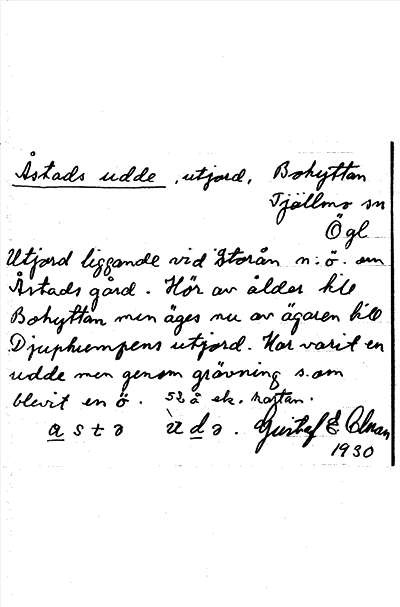 Åstads udde, utjord, Bohyttan
Tjällmo sn
Ögl
Utjord liggande vid Storån n.ö. om
Åstads gård. Hör av ålder till
Bohyttan men äges nu av ägaren till
Djuphempens utjord. Har varit en
udde men genom grävning s.om
blevit en ö. så ek. kartan.
a s t ə ù d ə. Gustaf E Olman
1930